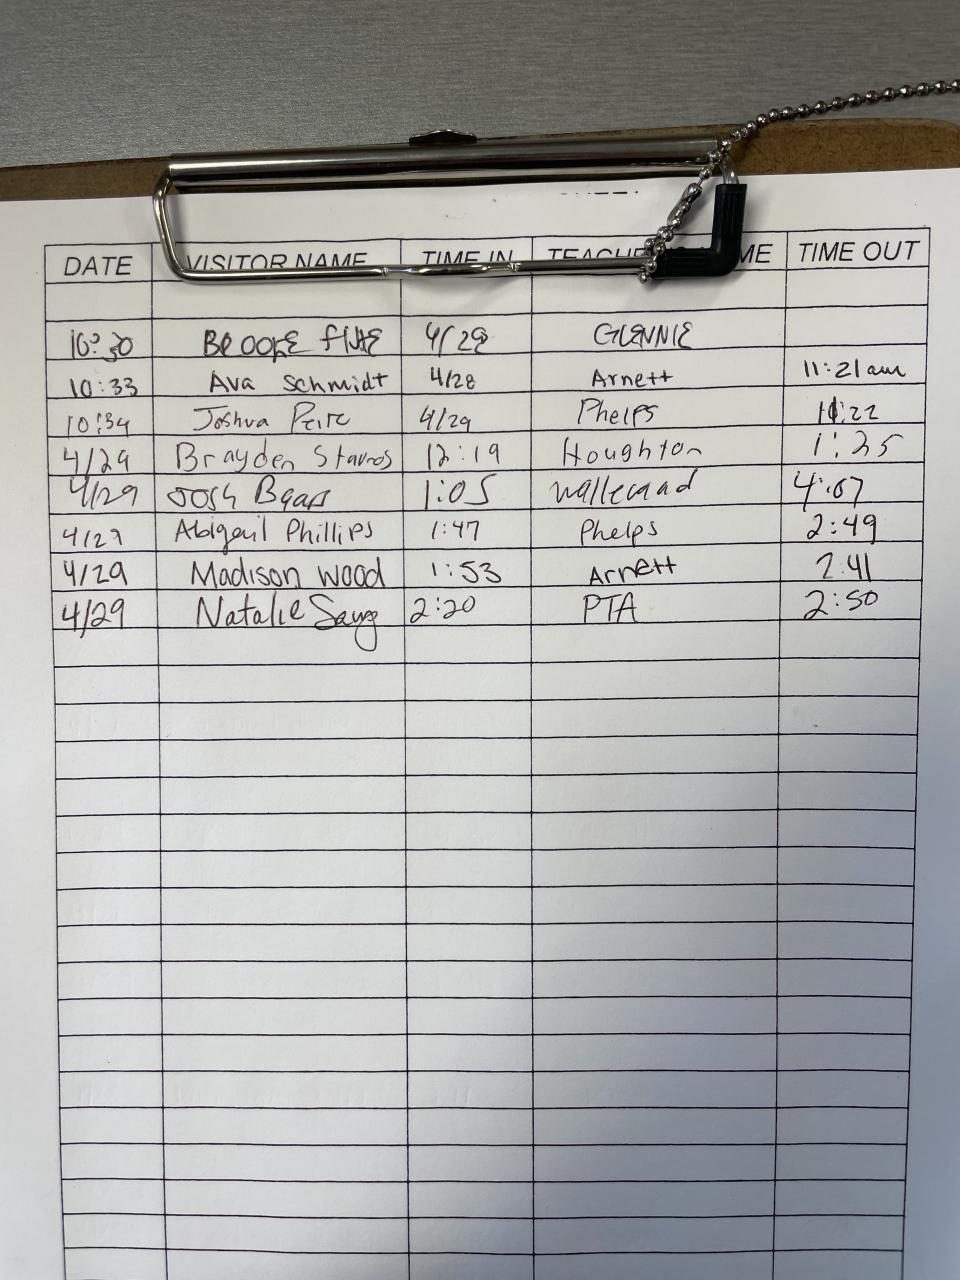 DATE VISITOR NAME TIME IN TIME OUT
10:30 BROOKE 4/29 GLENNIE
10:33 Ava Schmidt 4/28 Arnett 11:21am
10:34 Joshua 4/29 Phelps 11:22
4/29 Brayden Stavros 12:19 Houghton 1:25
4/29 Josh 1:05 4:07
4/29 Abigail Phillips 1:47 Phelps 2:49
4/29 Madison Wood 1:53 Arnett 2:41
4/29 Natalie 2:20 PTA 2:50